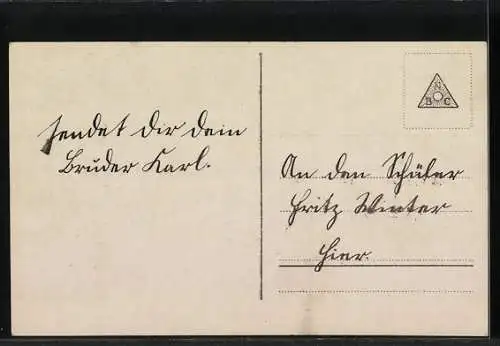 sendet dir dein
Bruder Karl.
N
B C
An den Schüler
Fritz Winter
Hier.